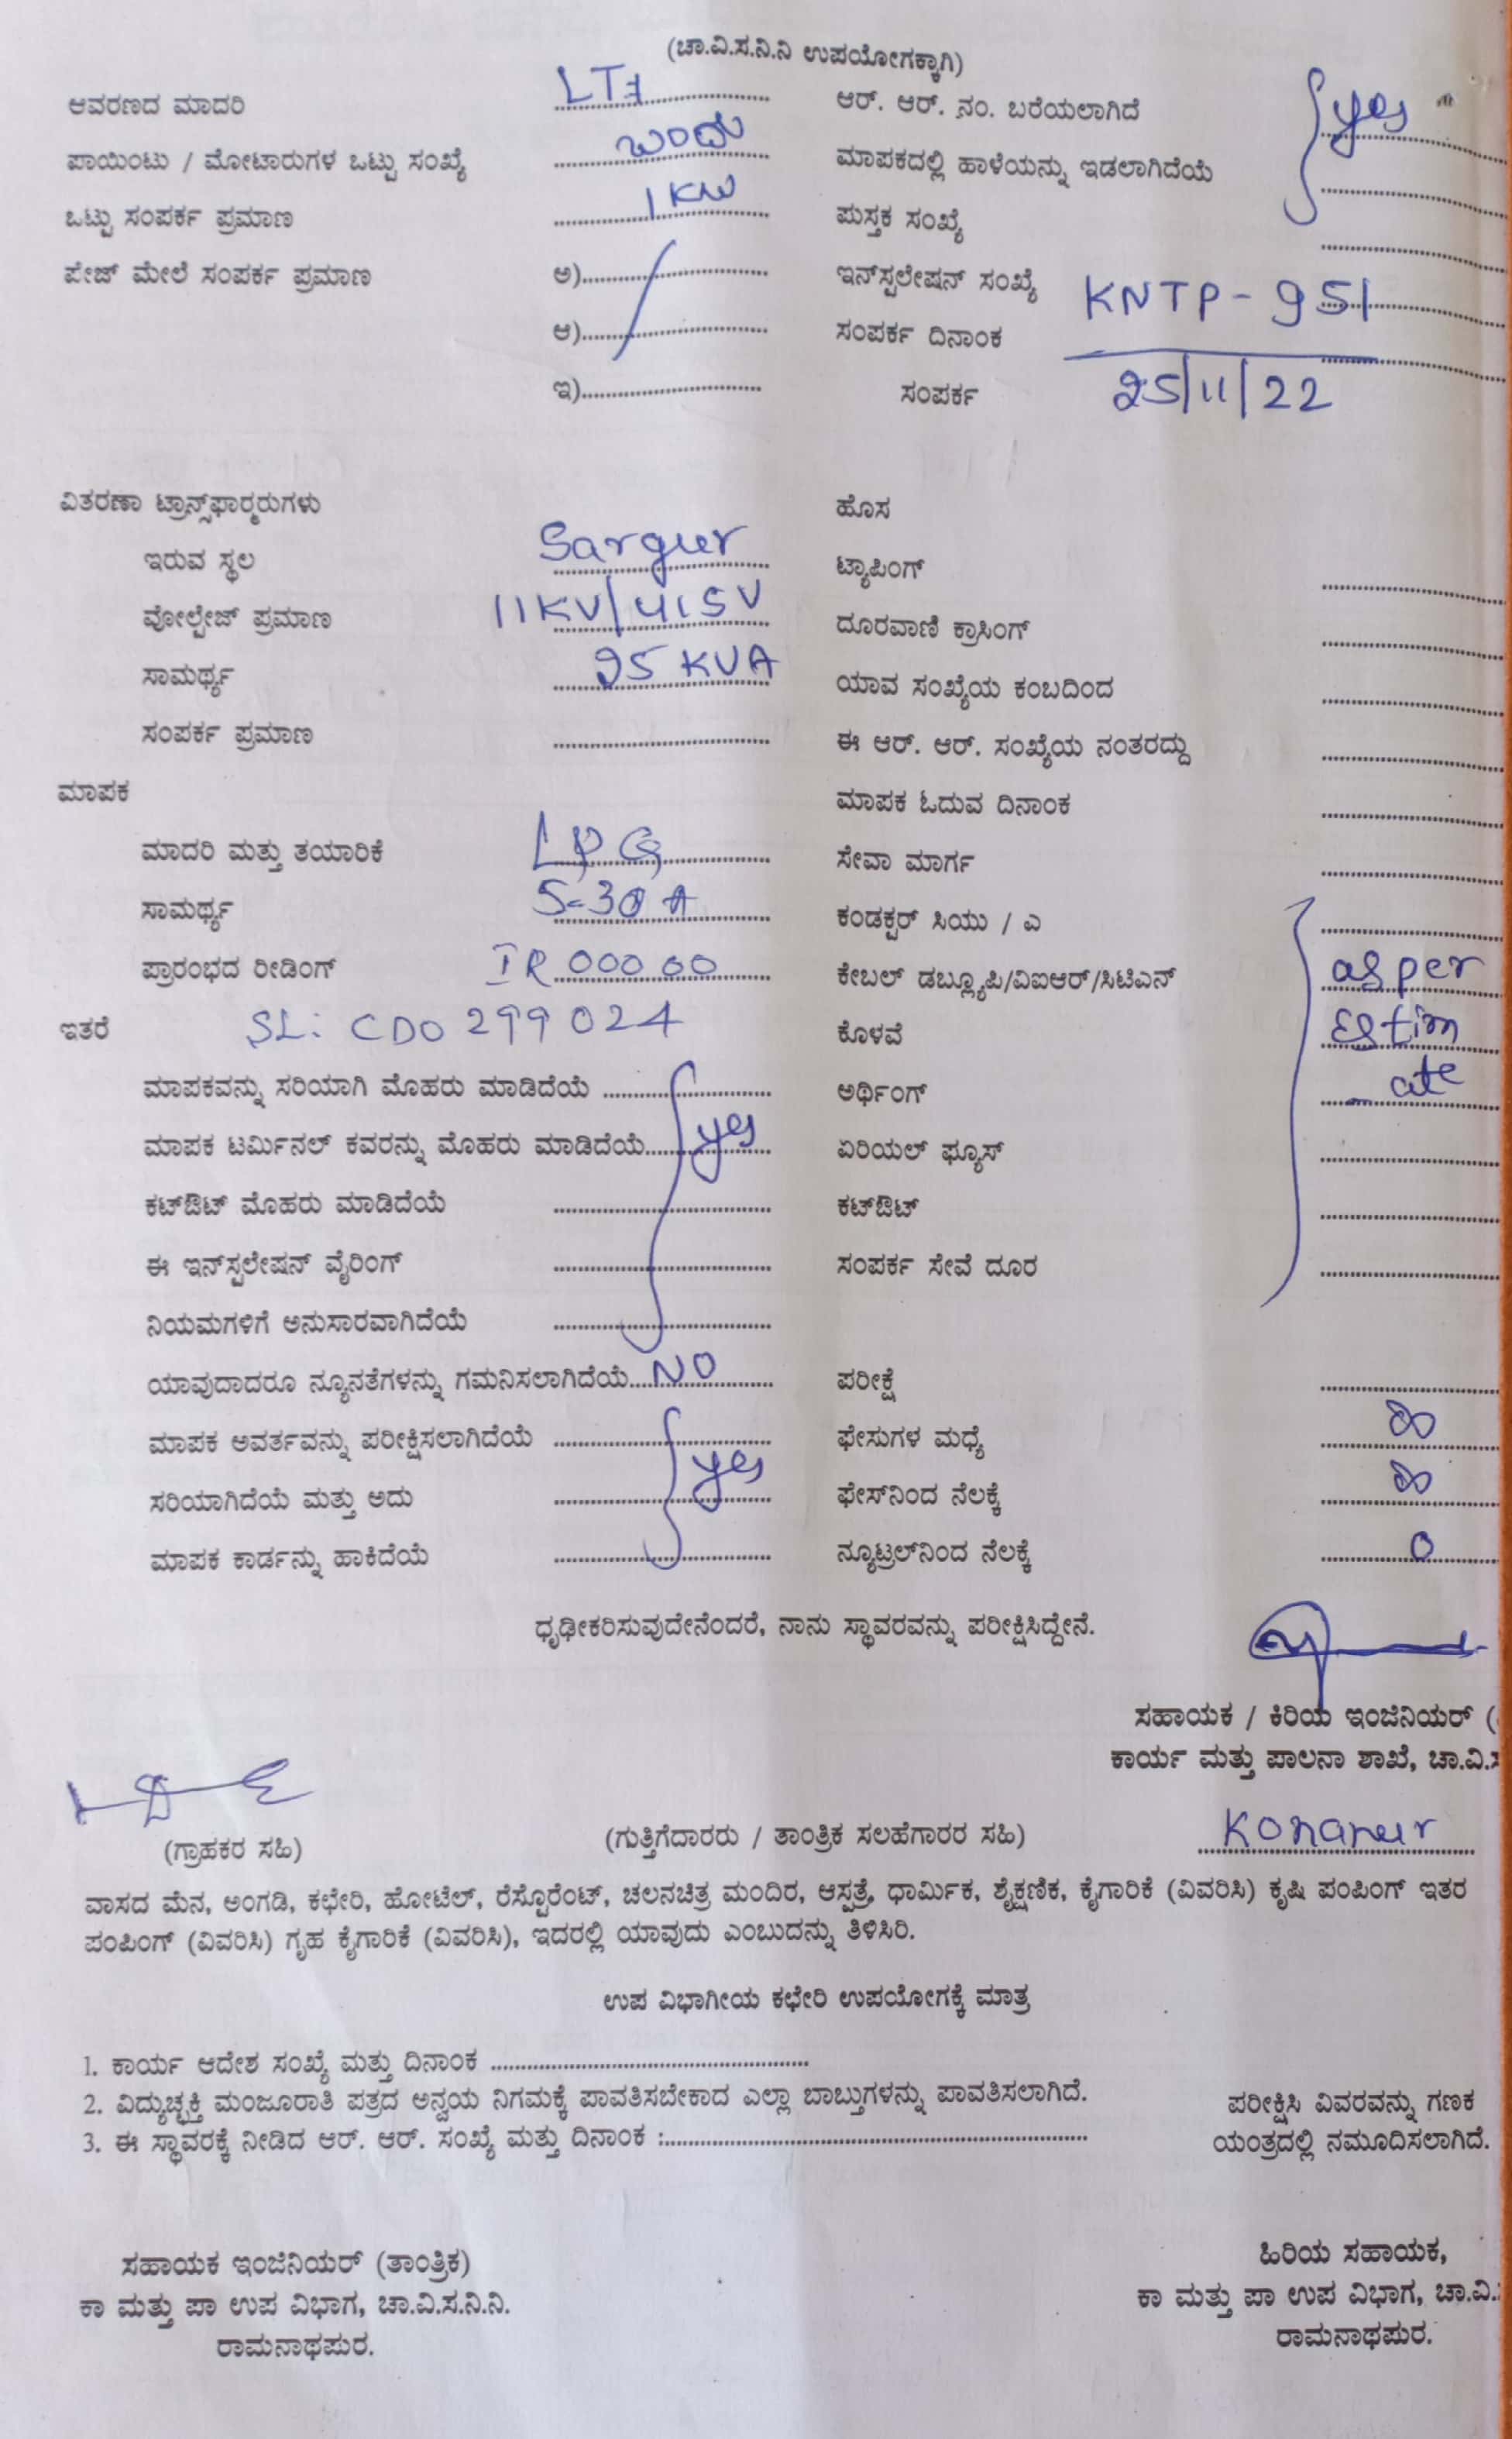 (ಚಾ.ವಿ.ಸ.ನಿ.ನಿ ಉಪಯೋಗಕ್ಕಾಗಿ)
ಆವರಣದ ಮಾದರಿ LT7 ಆರ್. ಆರ್. ನಂ. ಬರೆಯಲಾಗಿದೆ yes
ಪಾಯಿಂಟು / ಮೋಟಾರುಗಳ ಒಟ್ಟು ಸಂಖ್ಯೆ ಒಂದು ಮಾಪಕದಲ್ಲಿ ಹಾಳೆಯನ್ನು ಇಡಲಾಗಿದೆಯೆ
ಒಟ್ಟು ಸಂಪರ್ಕ ಪ್ರಮಾಣ 1 KW ಪುಸ್ತಕ ಸಂಖ್ಯೆ
ಪೇಜ್ ಮೇಲೆ ಸಂಪರ್ಕ ಪ್ರಮಾಣ ಅ) ಇನ್‌ಸ್ಟಲೇಷನ್ ಸಂಖ್ಯೆ KNTP - 951
ಆ) ಸಂಪರ್ಕ ದಿನಾಂಕ
ಇ) ಸಂಪರ್ಕ 25/11/22
ವಿತರಣಾ ಟ್ರಾನ್ಸ್‌ಫಾರ್ಮರುಗಳು ಹೊಸ
ಇರುವ ಸ್ಥಲ Sargur ಟ್ಯಾಪಿಂಗ್
ವೋಲ್ಟೇಜ್ ಪ್ರಮಾಣ 11KV/415V ದೂರವಾಣಿ ಕ್ರಾಸಿಂಗ್
ಸಾಮರ್ಥ್ಯ 25 KVA ಯಾವ ಸಂಖ್ಯೆಯ ಕಂಬದಿಂದ
ಸಂಪರ್ಕ ಪ್ರಮಾಣ ಈ ಆರ್. ಆರ್. ಸಂಖ್ಯೆಯ ನಂತರದ್ದು
ಮಾಪಕ ಮಾಪಕ ಓದುವ ದಿನಾಂಕ
ಮಾದರಿ ಮತ್ತು ತಯಾರಿಕೆ ಸೇವಾ ಮಾರ್ಗ
ಸಾಮರ್ಥ್ಯ 5-30 A ಕಂಡಕ್ಟರ್ ಸಿಯು / ಎ
ಪ್ರಾರಂಭದ ರೀಡಿಂಗ್ IR 00000 ಕೇಬಲ್ ಡಬ್ಲ್ಯೂಪಿ/ವಿಐಆರ್/ಸಿಟಿಎನ್ as per
ಇತರೆ SL: CDO 299024 ಕೊಳವೆ Estim
ಮಾಪಕವನ್ನು ಸರಿಯಾಗಿ ಮೊಹರು ಮಾಡಿದೆಯೆ ಅರ್ಥಿಂಗ್ - ate
ಮಾಪಕ ಟರ್ಮಿನಲ್ ಕವರನ್ನು ಮೊಹರು ಮಾಡಿದೆಯೆ yes ಏರಿಯಲ್ ಫ್ಯೂಸ್
ಕಟ್‌ಔಟ್ ಮೊಹರು ಮಾಡಿದೆಯೆ ಕಟ್‌ಔಟ್
ಈ ಇನ್‌ಸ್ಟಲೇಷನ್ ವೈರಿಂಗ್ ಸಂಪರ್ಕ ಸೇವೆ ದೂರ
ನಿಯಮಗಳಿಗೆ ಅನುಸಾರವಾಗಿದೆಯೆ
ಯಾವುದಾದರೂ ನ್ಯೂನತೆಗಳನ್ನು ಗಮನಿಸಲಾಗಿದೆಯೆ NO ಪರೀಕ್ಷೆ
ಮಾಪಕ ಅವರ್ತವನ್ನು ಪರೀಕ್ಷಿಸಲಾಗಿದೆಯೆ ಫೇಸುಗಳ ಮಧ್ಯೆ ∞
ಸರಿಯಾಗಿದೆಯೆ ಮತ್ತು ಅದು yes ಫೇಸ್‌ನಿಂದ ನೆಲಕ್ಕೆ ∞
ಮಾಪಕ ಕಾರ್ಡನ್ನು ಹಾಕಿದೆಯೆ ನ್ಯೂಟ್ರಲ್‌ನಿಂದ ನೆಲಕ್ಕೆ 0
ಧೃಢೀಕರಿಸುವುದೇನೆಂದರೆ, ನಾನು ಸ್ಥಾವರವನ್ನು ಪರೀಕ್ಷಿಸಿದ್ದೇನೆ.
ಸಹಾಯಕ / ಕಿರಿಯ ಇಂಜಿನಿಯರ್ (
ಕಾರ್ಯ ಮತ್ತು ಪಾಲನಾ ಶಾಖೆ, ಚಾ.ವಿ.ಸ
(ಗ್ರಾಹಕರ ಸಹಿ) (ಗುತ್ತಿಗೆದಾರರು / ತಾಂತ್ರಿಕ ಸಲಹೆಗಾರರ ಸಹಿ) Konanur
ವಾಸದ ಮೆನ, ಅಂಗಡಿ, ಕಛೇರಿ, ಹೋಟೆಲ್, ರೆಸ್ಟೊರೆಂಟ್, ಚಲನಚಿತ್ರ ಮಂದಿರ, ಆಸ್ಪತ್ರೆ, ಧಾರ್ಮಿಕ, ಶೈಕ್ಷಣಿಕ, ಕೈಗಾರಿಕೆ (ವಿವರಿಸಿ) ಕೃಷಿ ಪಂಪಿಂಗ್ ಇತರ
ಪಂಪಿಂಗ್ (ವಿವರಿಸಿ) ಗೃಹ ಕೈಗಾರಿಕೆ (ವಿವರಿಸಿ), ಇದರಲ್ಲಿ ಯಾವುದು ಎಂಬುದನ್ನು ತಿಳಿಸಿರಿ.
ಉಪ ವಿಭಾಗೀಯ ಕಛೇರಿ ಉಪಯೋಗಕ್ಕೆ ಮಾತ್ರ
1. ಕಾರ್ಯ ಆದೇಶ ಸಂಖ್ಯೆ ಮತ್ತು ದಿನಾಂಕ
2. ವಿದ್ಯುಚ್ಛಕ್ತಿ ಮಂಜೂರಾತಿ ಪತ್ರದ ಅನ್ವಯ ನಿಗಮಕ್ಕೆ ಪಾವತಿಸಬೇಕಾದ ಎಲ್ಲಾ ಬಾಬ್ತುಗಳನ್ನು ಪಾವತಿಸಲಾಗಿದೆ. ಪರೀಕ್ಷಿಸಿ ವಿವರವನ್ನು ಗಣಕ
3. ಈ ಸ್ಥಾವರಕ್ಕೆ ನೀಡಿದ ಆರ್. ಆರ್. ಸಂಖ್ಯೆ ಮತ್ತು ದಿನಾಂಕ : ಯಂತ್ರದಲ್ಲಿ ನಮೂದಿಸಲಾಗಿದೆ.
ಸಹಾಯಕ ಇಂಜಿನಿಯರ್ (ತಾಂತ್ರಿಕ) ಹಿರಿಯ ಸಹಾಯಕ,
ಕಾ ಮತ್ತು ಪಾ ಉಪ ವಿಭಾಗ, ಚಾ.ವಿ.ಸ.ನಿ.ನಿ. ಕಾ ಮತ್ತು ಪಾ ಉಪ ವಿಭಾಗ, ಚಾ.ವಿ.
ರಾಮನಾಥಪುರ. ರಾಮನಾಥಪುರ.